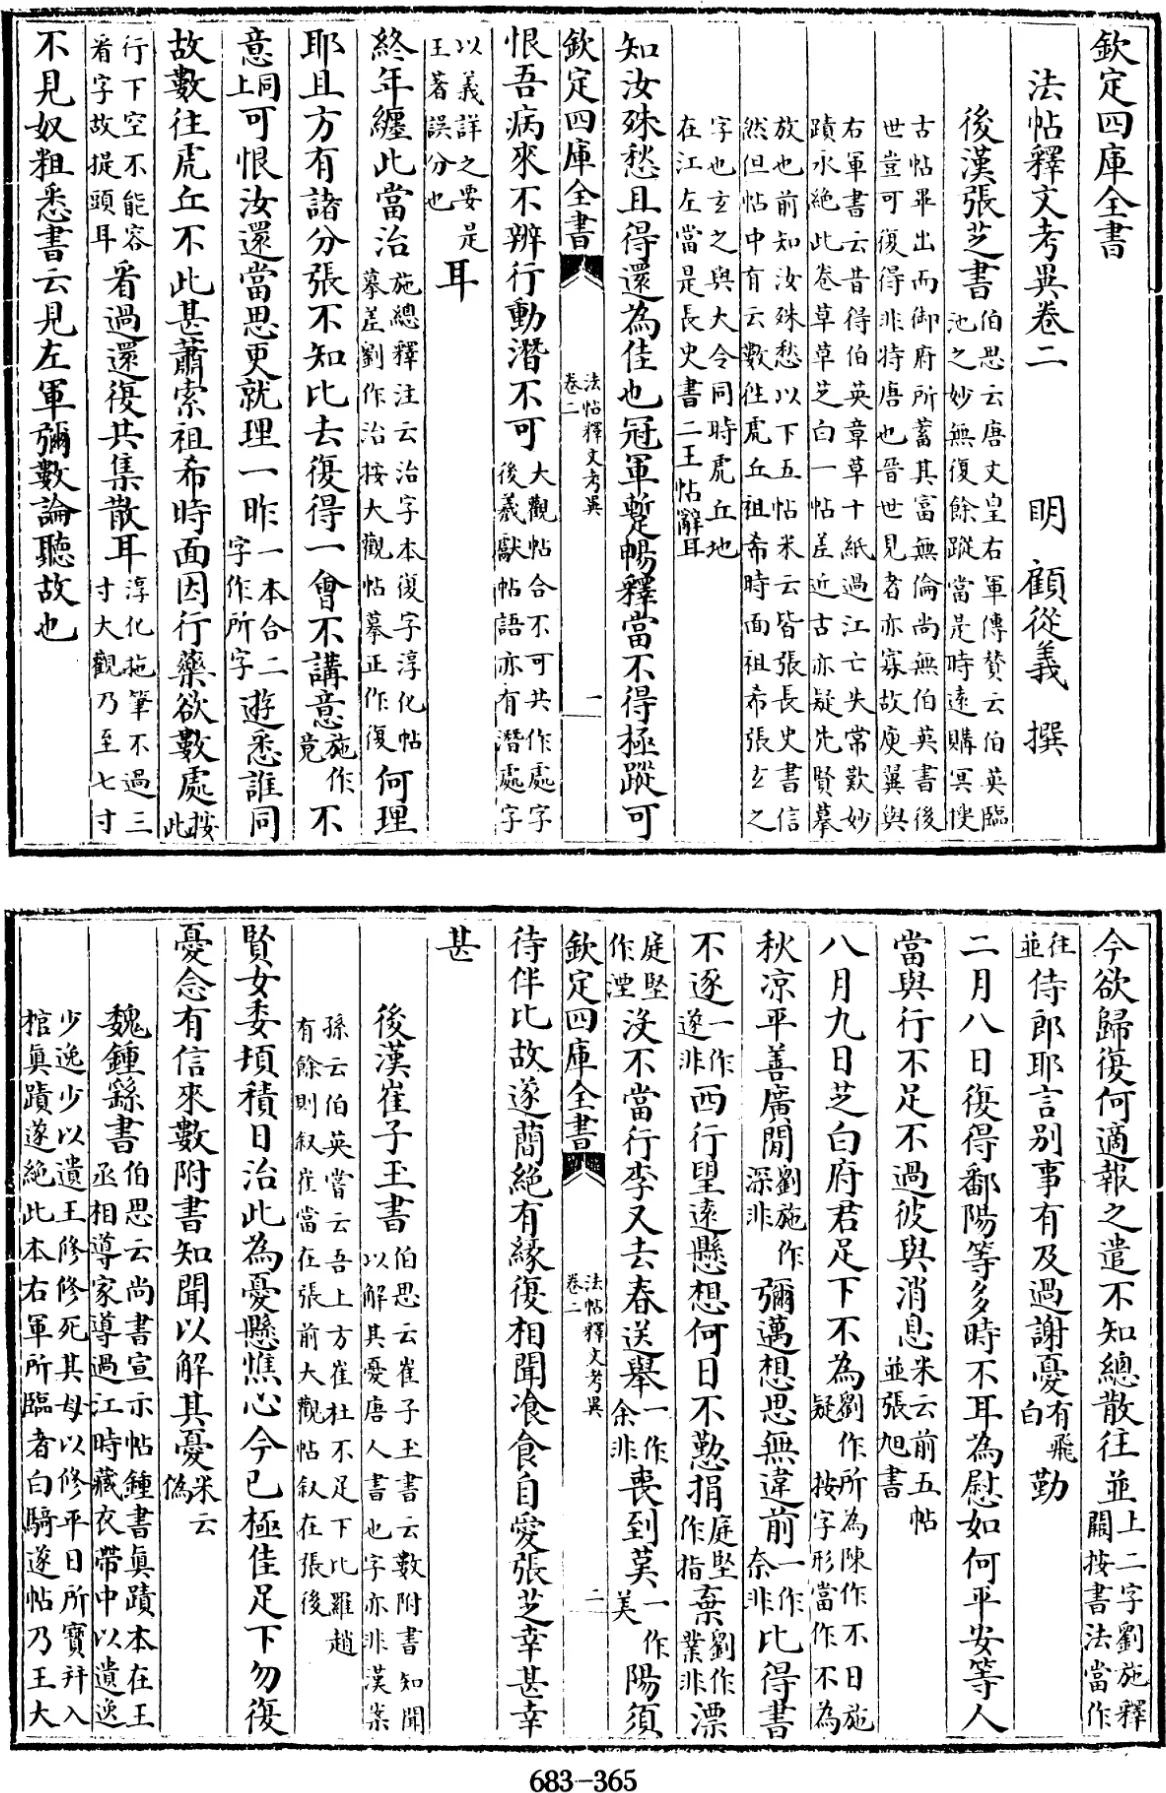 欽定四庫全書
法帖釋文考異卷二
明 顧從義 撰
後漢張芝書伯思云唐文皇右軍傳賛云伯英臨池之妙無復餘蹤當是時遠購冥搜
古帖畢出而御府所蓄其富無倫尚無伯英書後世豈可復得非特唐也晉世見者亦寡故庾翼與
右軍書云昔得伯英章草十紙過江亡失常歎妙蹟永絶此卷草草芝白一帖差近古亦疑先賢摹
放也前知汝殊愁以下五帖米云皆張長史書信然但帖中有云數往虎丘祖希時面祖希張玄之
字也玄之與大令同時虎丘地在江左當是長史書二王帖辭耳
知汝殊愁且得還為佳也冠軍蹔暢釋當不得極蹤可
欽定四庫全書
法帖釋文考異
卷二
一
恨吾病來不辨行動潛不可大觀帖合不可共作處字後羲獻帖語亦有潛處字
以義詳之要是王著誤分也耳
終年纏此當治施總釋注云治字本復字淳化帖摹差劉作治按大觀帖摹正作復何理
耶且方有諸分張不知比去復得一會不講意施作竟不
意同上可恨汝還當思更就理一昨一本合二字作所字遊悉誰同
故數往虎丘不此甚蕭索祖希時面因行藥欲數處按此
行下空不能容㸔字故提頭耳㸔過還復共集散耳淳化拖筆不過三寸大觀乃至七寸
不見奴粗悉書云見左軍彌數論聽故也
今欲歸復何適報之遣不知總散往並上二字劉施釋闕按書法當作
往並侍郎耶言别事有及過謝憂有飛白勤
二月八日復得鄱陽等多時不耳為慰如何平安等人
當與行不足不過彼與消息米云前五帖並張旭書
八月九日芝白府君足下不為劉作所為陳作不日施疑按字形當作不為
秋凉平善廣閒劉施作深非彌邁想思無違前一作奈非比得書
不逐一作遂非西行望遠懸想何日不懃捐庭堅作指棄劉作業非漂
庭堅作湮沒不當行李又去春送舉一作余非喪到莫一作美陽須
欽定四庫全書
法帖釋文考異
卷二
二
待伴比故遂蕳絶有緣復相聞飡食自愛張芝幸甚幸
甚
後漢崔子玉書伯思云崔子玉書云數附書知聞以解其憂唐人書也字亦非漢槩
孫云伯英嘗云吾上方崔杜不足下比羅趙有餘則叙崔當在張前大觀帖叙在張後
賢女委頓積日治此為憂懸憔心今已極佳足下勿復
憂念有信來數附書知聞以解其憂米云偽
魏鍾繇書伯思云尚書宣示帖鍾書眞蹟本在王丞相導家導過江時藏衣帶中以遺逸
少逸少以遺王修修死其母以修平日所寶幷入棺眞蹟遂絶此本右軍所臨者白騎遂帖乃王大
683-365